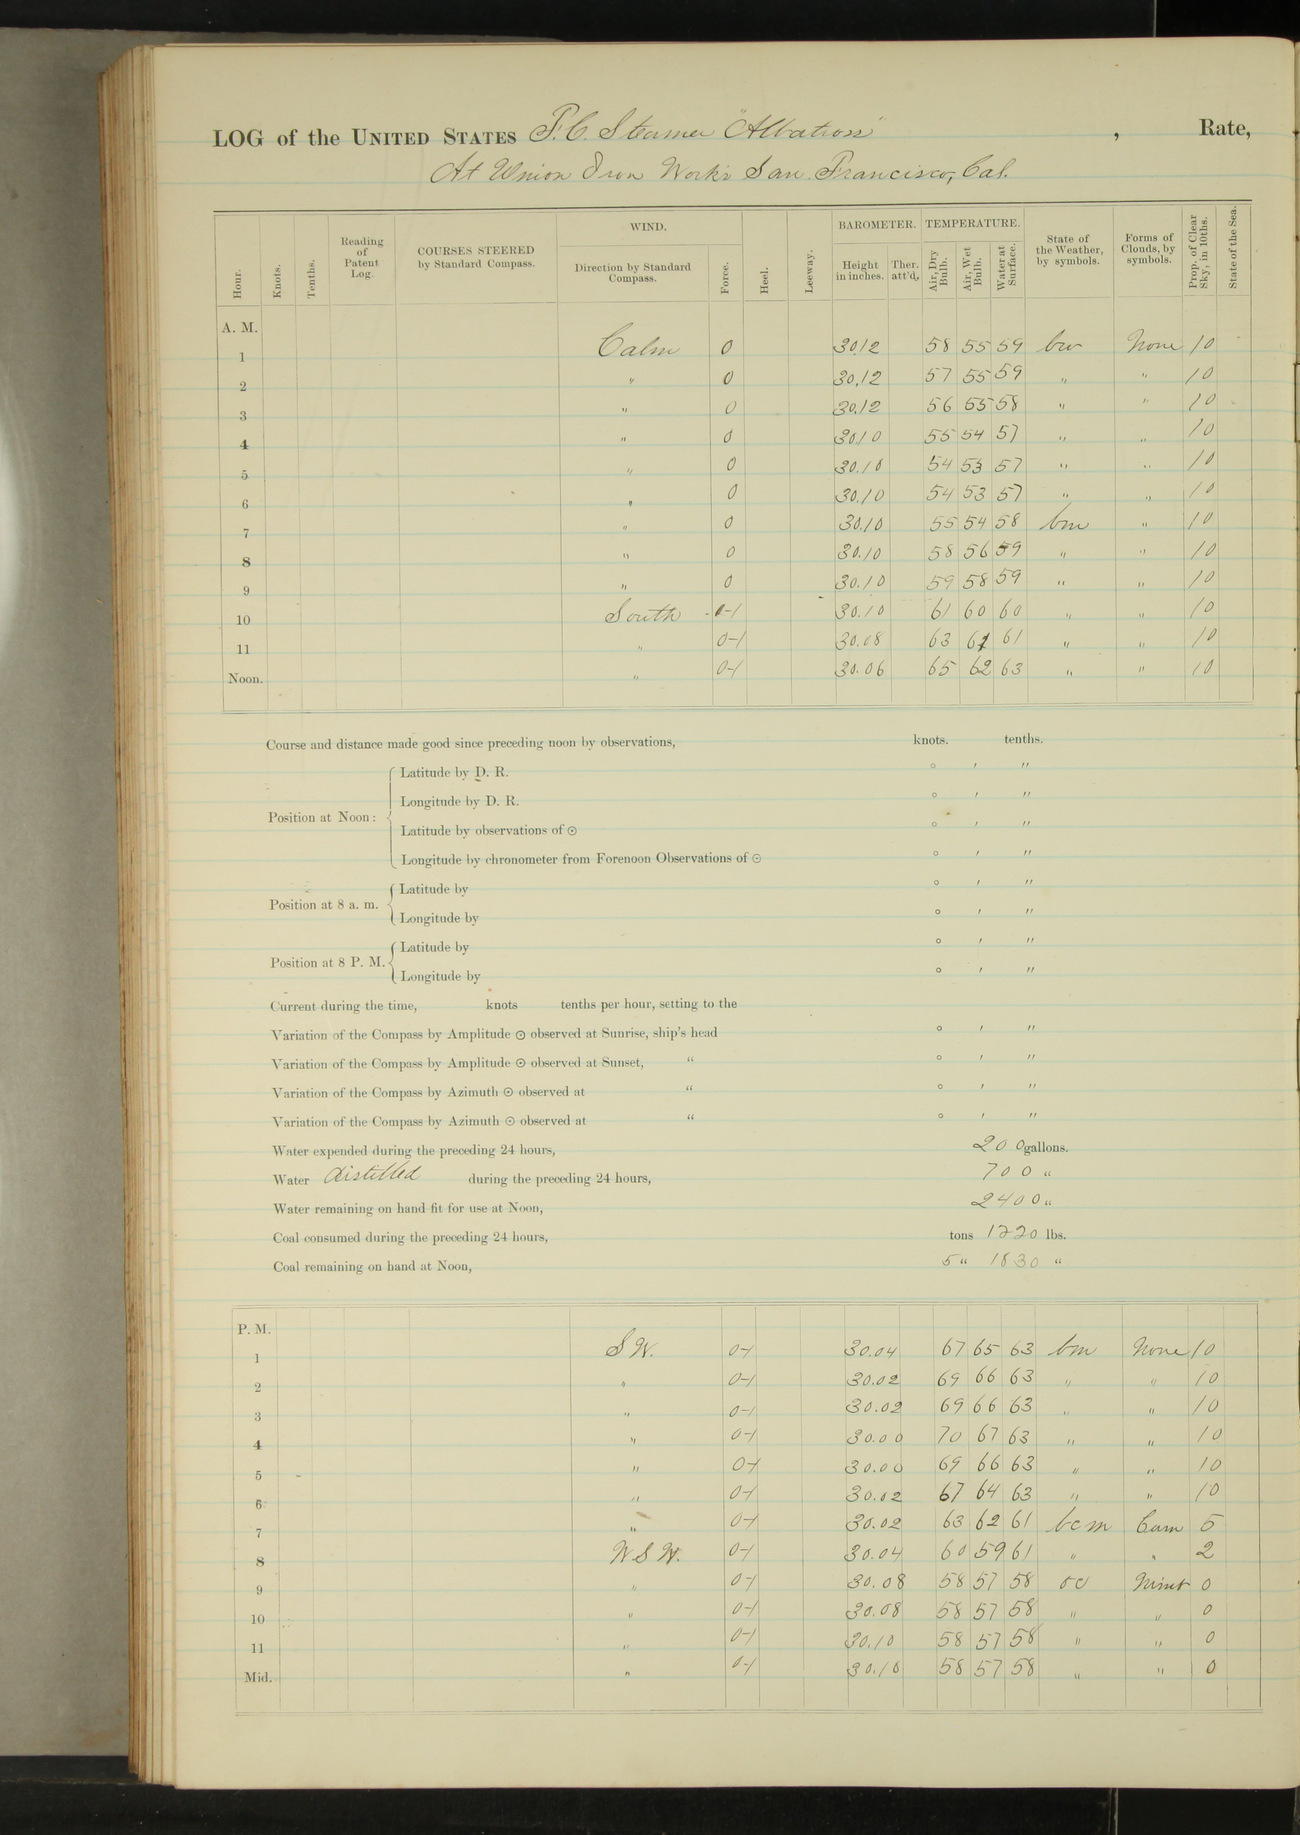 LOG of the UNITED STATES F.C. Steamer "Albatross", Rate,
At Union Iron Works San Francisco, Cal.
Hour. Knots. Tenths. Reading of Patent Log. COURSES STEERED by Standard Compass. WIND. Direction by Standard Compass. Force. Heel. Leeway. BAROMETER. Height in inches. Ther. att'd. TEMPERATURE. Air, Dry Bulb. Air, Wet Bulb. Water at Surface. State of the Weather, by symbols. Forms of Clouds, by symbols. Prop. of Clear Sky, in 10ths. State of the Sea.
A. M.
1 Calm 0 30.12 58 55 59 bw None 10
2 " 0 30.12 57 55 59 " " 10
3 " 0 30.12 56 55 58 " " 10
4 " 0 30.10 55 54 57 " " 10
5 " 0 30.10 54 53 57 " " 10
6 " 0 30.10 54 53 57 " " 10
7 " 0 30.10 55 54 58 bm " 10
8 " 0 30.10 58 56 59 " " 10
9 " 0 30.10 59 58 59 " " 10
10 South 0-1 30.10 61 60 60 " " 10
11 " 0-1 30.08 63 61 61 " " 10
Noon. " 0-1 30.06 65 62 63 " " 10
Course and distance made good since preceding noon by observations, knots. tenths.
Position at Noon: Latitude by D. R. ° ′ ″
Longitude by D. R. ° ′ ″
Latitude by observations of ⊙ ° ′ ″
Longitude by chronometer from Forenoon Observations of ⊙ ° ′ ″
Position at 8 a. m. Latitude by ° ′ ″
Longitude by ° ′ ″
Position at 8 P. M. Latitude by ° ′ ″
Longitude by ° ′ ″
Current during the time, knots tenths per hour, setting to the
Variation of the Compass by Amplitude ⊙ observed at Sunrise, ship's head ° ′ ″
Variation of the Compass by Amplitude ⊙ observed at Sunset, " ° ′ ″
Variation of the Compass by Azimuth ⊙ observed at " ° ′ ″
Variation of the Compass by Azimuth ⊙ observed at " ° ′ ″
Water expended during the preceding 24 hours, 200 gallons.
Water distilled during the preceding 24 hours, 700 "
Water remaining on hand fit for use at Noon, 2400 "
Coal consumed during the preceding 24 hours, tons 1220 lbs.
Coal remaining on hand at Noon, 5 " 1830 "
P. M.
1 SW. 0-1 30.04 67 65 63 bm None 10
2 " 0-1 30.02 69 66 63 " " 10
3 " 0-1 30.02 69 66 63 " " 10
4 " 0-1 30.00 70 67 63 " " 10
5 " 0-1 30.00 69 66 63 " " 10
6 " 0-1 30.02 67 64 63 " " 10
7 " 0-1 30.02 63 62 61 bcm Cum 5
8 WSW. 0-1 30.04 60 59 61 " " 2
9 " 0-1 30.08 58 57 58 oc Nimb 0
10 " 0-1 30.08 58 57 58 " " 0
11 " 0-1 30.10 58 57 58 " " 0
Mid. " 0-1 30.10 58 57 58 " " 0